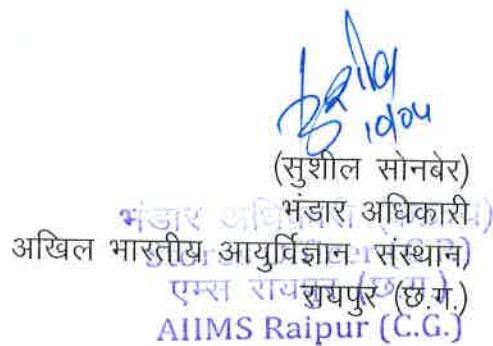 सुशील
10/04
(सुशील सोनबेर)
भंडार अधिकारी
अखिल भारतीय आयुर्विज्ञान संस्थान,
रायपुर (छ.ग.)
भंडार
एम्स रायपुर (छ.ग.)
AIIMS Raipur (C.G.)